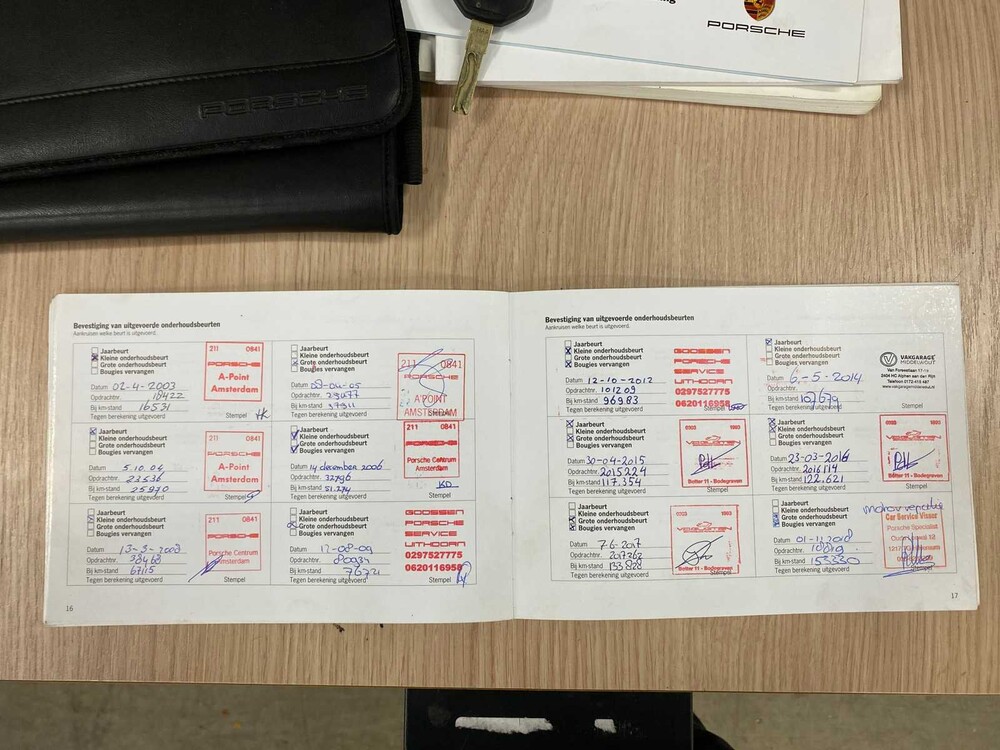 PORSCHE
PORSCHE
Bevestiging van uitgevoerde onderhoudsbeurten
Aankruisen welke beurt is uitgevoerd.
Jaarbeurt
Kleine onderhoudsbeurt
Grote onderhoudsbeurt
Bougies vervangen
Datum 02-4-2003
Opdrachtnr. 18422
Bij km-stand 16531
Tegen berekening uitgevoerd
Stempel
211 0841
PORSCHE
A-Point
Amsterdam
Jaarbeurt
Kleine onderhoudsbeurt
Grote onderhoudsbeurt
Bougies vervangen
Datum
Opdrachtnr. 29477
Bij km-stand 37911
Tegen berekening uitgevoerd
Stempel
211 0841
PORSCHE
A-POINT
AMSTERDAM
Jaarbeurt
Kleine onderhoudsbeurt
Grote onderhoudsbeurt
Bougies vervangen
Datum 5.10.04
Opdrachtnr. 23536
Bij km-stand 25970
Tegen berekening uitgevoerd
Stempel
211 0841
PORSCHE
A-Point
Amsterdam
Jaarbeurt
Kleine onderhoudsbeurt
Grote onderhoudsbeurt
Bougies vervangen
Datum 14 december 2006
Opdrachtnr. 32796
Bij km-stand 51.274
Tegen berekening uitgevoerd
Stempel
211 0841
PORSCHE
Porsche Centrum
Amsterdam
Jaarbeurt
Kleine onderhoudsbeurt
Grote onderhoudsbeurt
Bougies vervangen
Datum 13-5-2008
Opdrachtnr. 38468
Bij km-stand 67115
Tegen berekening uitgevoerd
Stempel
211 0841
PORSCHE
Porsche Centrum
Amsterdam
Jaarbeurt
Kleine onderhoudsbeurt
Grote onderhoudsbeurt
Bougies vervangen
Datum 12-08-09
Opdrachtnr.
Bij km-stand 76721
Tegen berekening uitgevoerd
Stempel
GOOSSEN
PORSCHE
SERVICE
UITHOORN
0297527775
0620116958
16
Bevestiging van uitgevoerde onderhoudsbeurten
Aankruisen welke beurt is uitgevoerd.
Jaarbeurt
Kleine onderhoudsbeurt
Grote onderhoudsbeurt
Bougies vervangen
Datum 12-10-2012
Opdrachtnr. 101209
Bij km-stand 96983
Tegen berekening uitgevoerd
Stempel
GOOSSEN
PORSCHE
SERVICE
UITHOORN
0297527775
0620116958
Jaarbeurt
Kleine onderhoudsbeurt
Grote onderhoudsbeurt
Bougies vervangen
Datum 6-5-2014
Opdrachtnr.
Bij km-stand 107679
Tegen berekening uitgevoerd
VAKGARAGE
MIDDELWOUT
Van Foreestlaan 17-19
2404 HC Alphen aan der Rijn
Telefoon 0172-415 487
Jaarbeurt
Kleine onderhoudsbeurt
Grote onderhoudsbeurt
Bougies vervangen
Datum 30-04-2015
Opdrachtnr. 2015224
Bij km-stand 117.354
Tegen berekening uitgevoerd
Stempel
Botter 11 - Bodegraven
Jaarbeurt
Kleine onderhoudsbeurt
Grote onderhoudsbeurt
Bougies vervangen
Datum 23-03-2016
Opdrachtnr. 2016114
Bij km-stand 122.621
Tegen berekening uitgevoerd
Stempel
Botter 11 - Bodegraven
Jaarbeurt
Kleine onderhoudsbeurt
Grote onderhoudsbeurt
Bougies vervangen
Datum 7-6-2017
Opdrachtnr. 2017362
Bij km-stand 133.828
Tegen berekening uitgevoerd
Stempel
Botter 11 - Bodegraven
Jaarbeurt
Kleine onderhoudsbeurt
Grote onderhoudsbeurt
Bougies vervangen
Datum 01-11-2018
Opdrachtnr.
Bij km-stand 153330
Tegen berekening uitgevoerd
Stempel
Car Service Visser
Porsche Specialist
17